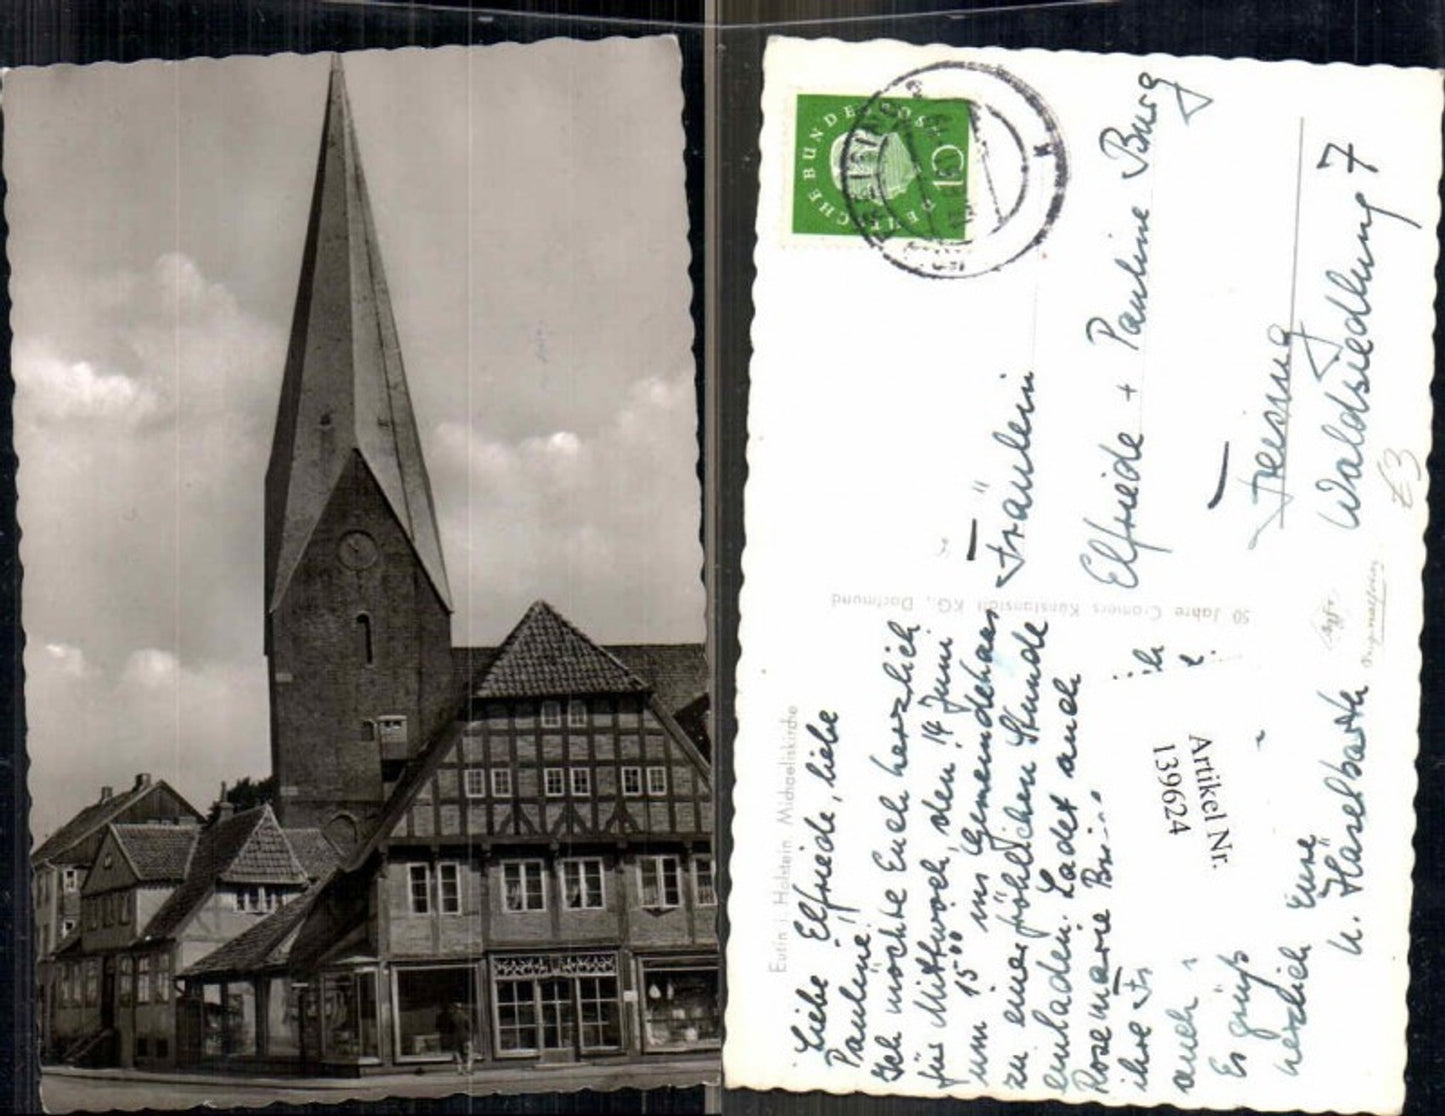 DEUTSCHE BUNDESPOST
Eutin i. Holstein, Michaeliskirche
Liebe Elfriede, liebe
Pauline!
Ich möchte Euch herzlich
für Mittwoch, den 14. Juni
um 15°° ins Gemeindehaus
zu einer fröhlichen Stunde
einladen. Ladet auch
Rosemarie
ihre Fr
auch
Es grüßt
herzlich Eure
U. Häselbarth
50 Jahre Cramers Kunstansicht KG., Dortmund
Fräulein
Elfriede + Pauline Burg
Freising
Waldsiedlung 7
Artikel Nr.
139624
£3